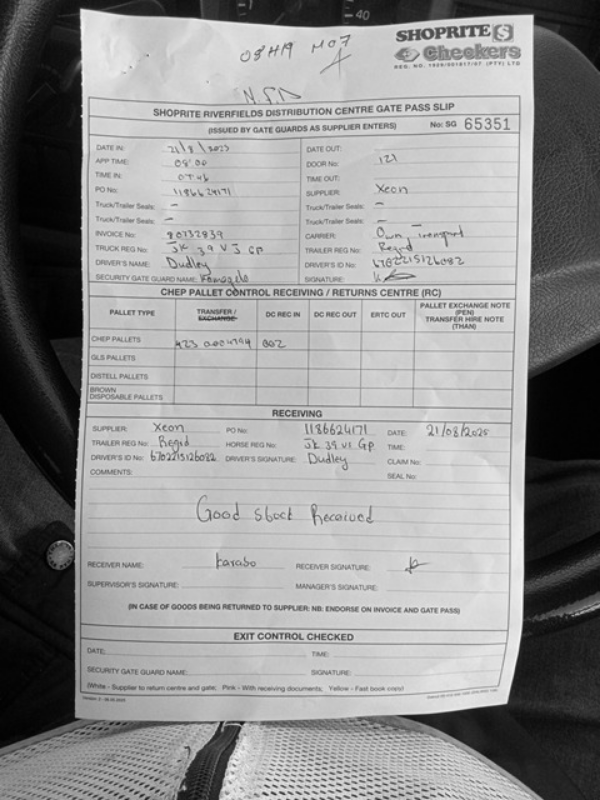 40
08H19 M07
SHOPRITE S
Checkers
REG. NO. 1929/001817/07 (PTY) LTD
SHOPRITE RIVERFIELDS DISTRIBUTION CENTRE GATE PASS SLIP
(ISSUED BY GATE GUARDS AS SUPPLIER ENTERS) No: SG 65351
DATE IN: DATE OUT:
APP TIME: 08:00 DOOR No: 121
TIME IN: 07:46 TIME OUT:
PO No: 1186624171 SUPPLIER: Xeon
Truck/Trailer Seals: - Truck/Trailer Seals: -
Truck/Trailer Seals: - Truck/Trailer Seals: -
INVOICE No: 80732839 CARRIER: Own Transport
TRUCK REG No: JK 39 VJ GP TRAILER REG No: Regid
DRIVER'S NAME: Dudley DRIVER'S ID No: 6702215126082
SECURITY GATE GUARD NAME: SIGNATURE:
CHEP PALLET CONTROL RECEIVING / RETURNS CENTRE (RC)
PALLET TYPE TRANSFER / EXCHANGE DC REC IN DC REC OUT ERTC OUT PALLET EXCHANGE NOTE (PEN) TRANSFER HIRE NOTE (THAN)
CHEP PALLETS 002
GLS PALLETS
DISTELL PALLETS
BROWN
DISPOSABLE PALLETS
RECEIVING
SUPPLIER: Xeon PO No: 1186624171 DATE: 21/08/2025
TRAILER REG No: Regid HORSE REG No: JK 39 VJ GP TIME:
DRIVER'S ID No: 6702215126082 DRIVER'S SIGNATURE: Dudley CLAIM No:
SEAL No:
COMMENTS:
Good stock Received
RECEIVER NAME: karabo RECEIVER SIGNATURE:
SUPERVISOR'S SIGNATURE: MANAGER'S SIGNATURE:
(IN CASE OF GOODS BEING RETURNED TO SUPPLIER: NB: ENDORSE ON INVOICE AND GATE PASS)
EXIT CONTROL CHECKED
DATE: TIME:
SECURITY GATE GUARD NAME: SIGNATURE:
(White - Supplier to return centre and gate; Pink - With receiving documents; Yellow - Fast book copy)